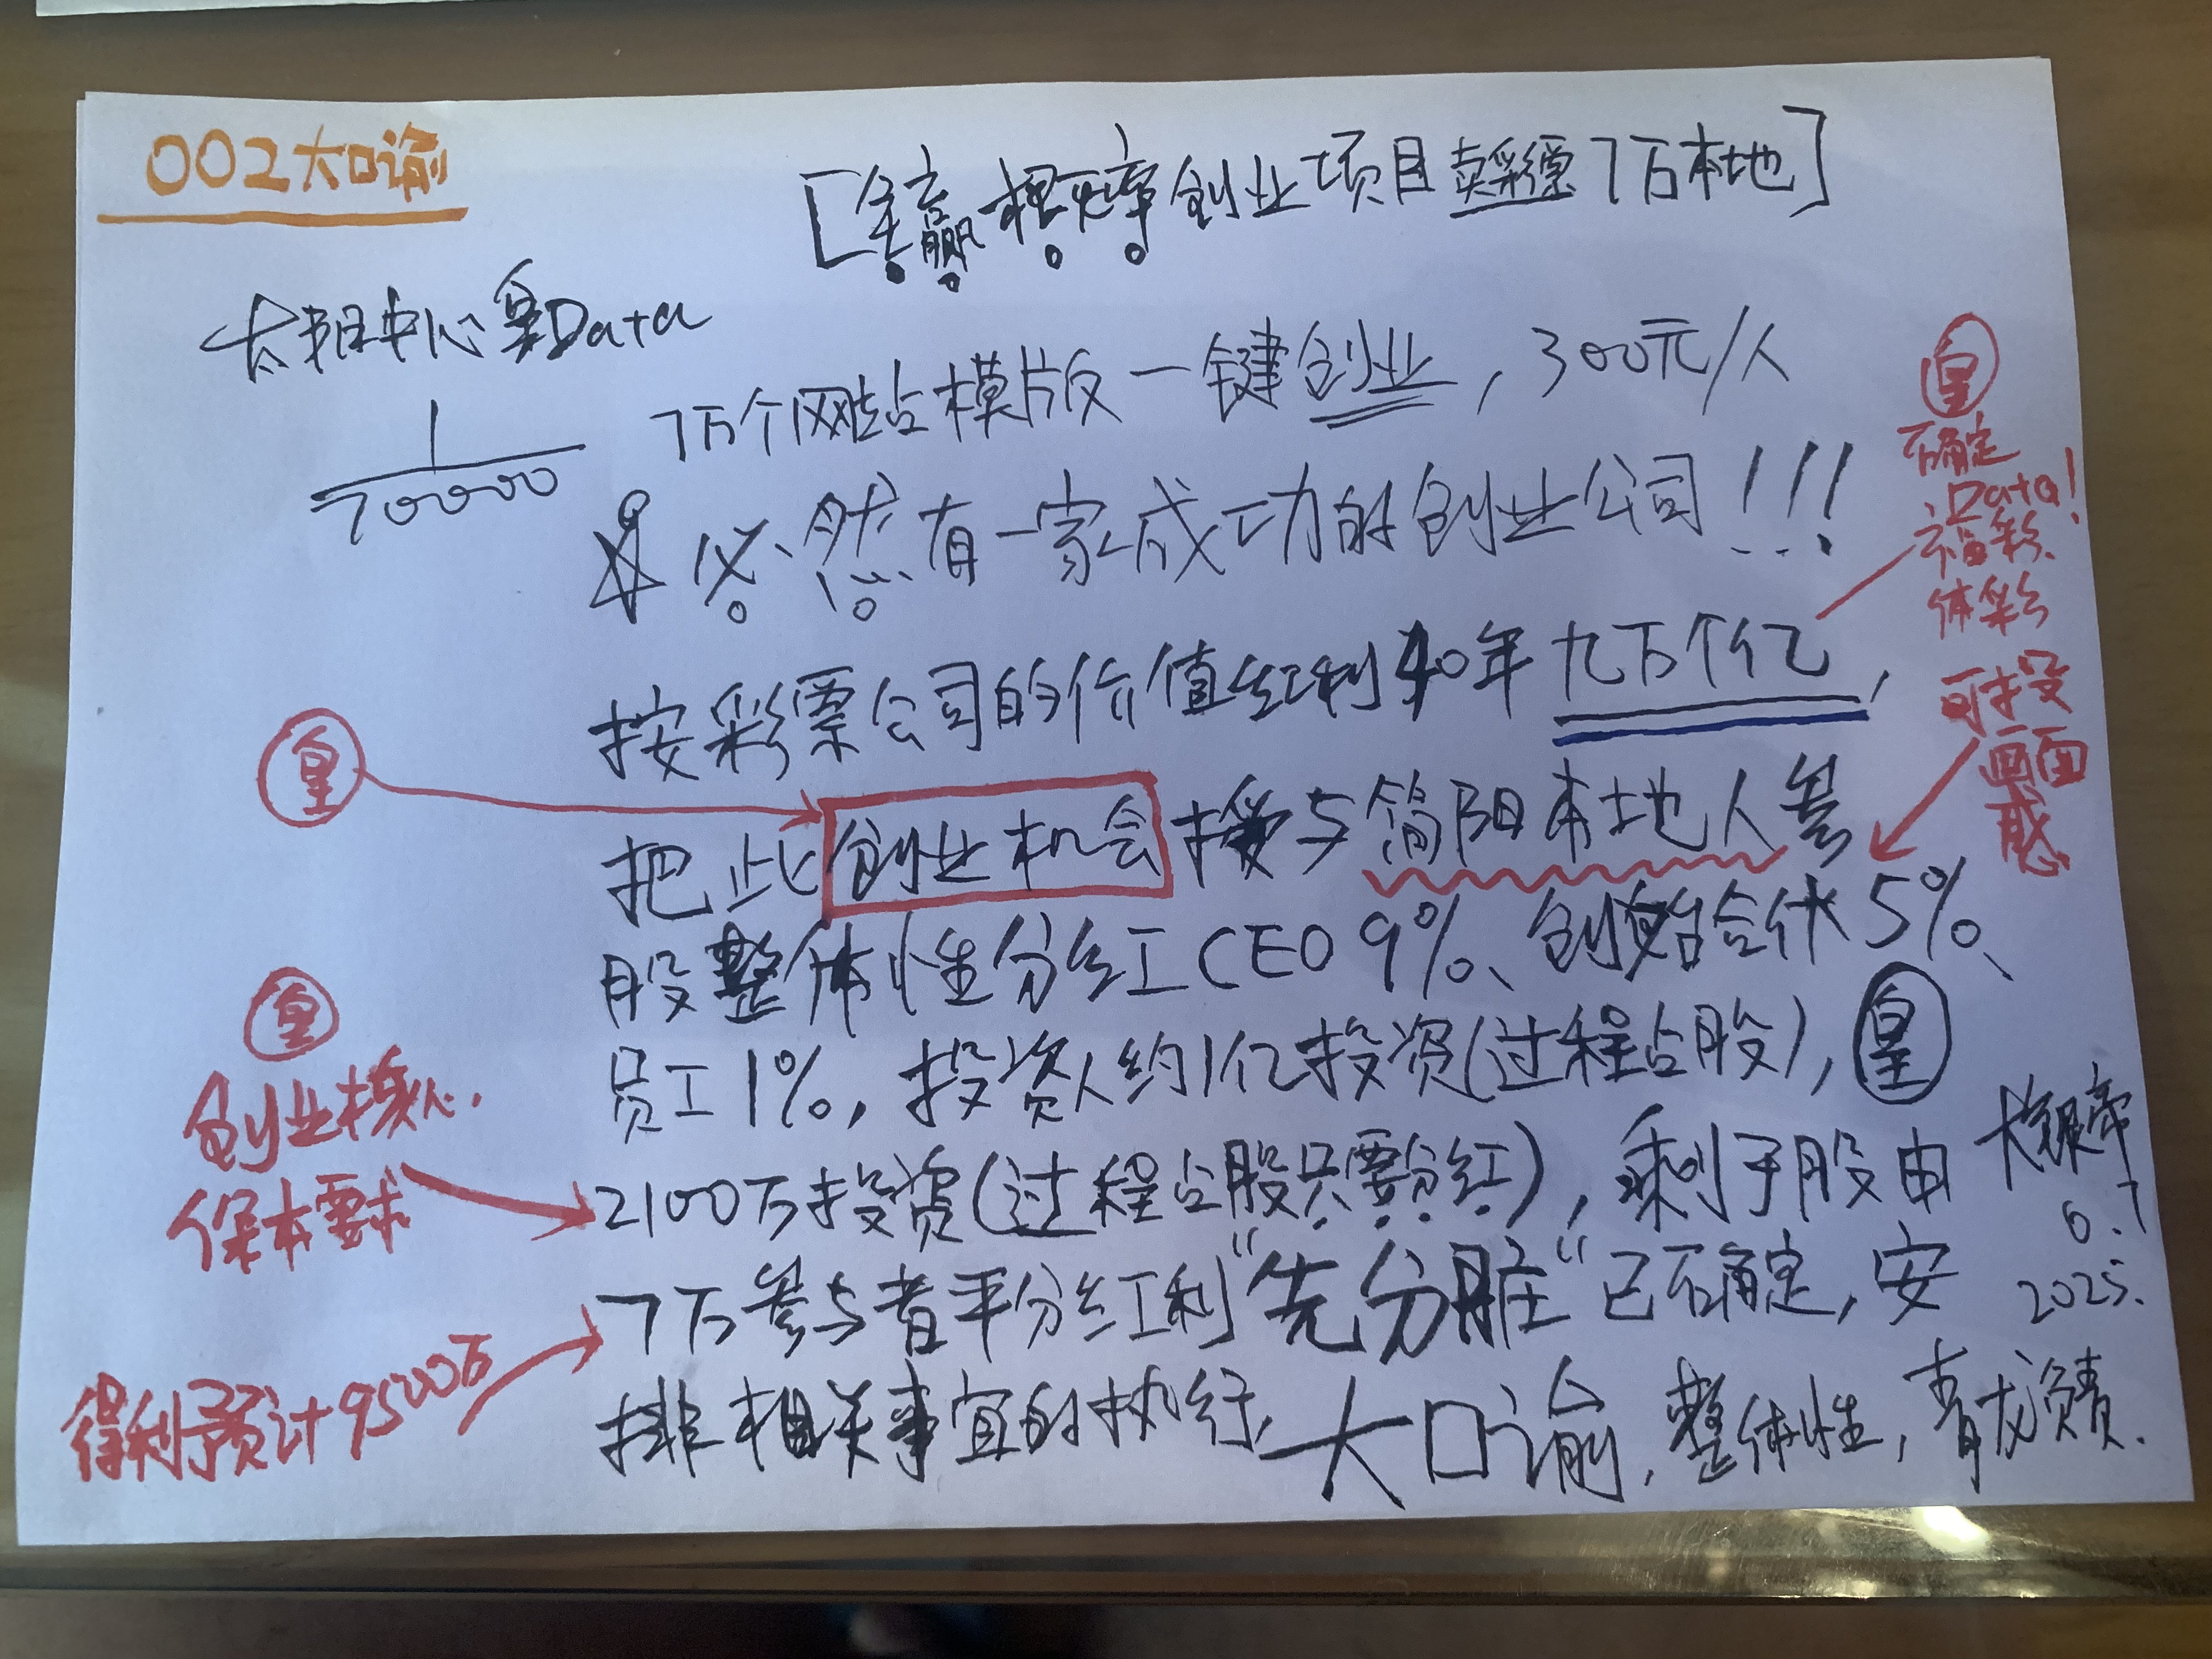 002大口谕
[全赢概率创业项目卖彩票7万本地]
太阳中心皇Data
1
70000
7万个网站模版一键创业，300元/人
必然有一家成功的创业公司!!!
按彩票公司的价值红利40年九万个亿，
把此创业机会授与简阳本地人参
股整体性分红CEO 9%、创始合伙5%、
员工1%，投资人约1亿投资(过程占股)，皇
2100万投资(过程占股只要分红)，剩于股由
7万参与者平分红利"先分脏"已确定，安
排相关事宜的执行，大口谕，整体性，青龙负责.
皇
确定
Data!
福彩.
体彩
可投
画面
感
皇
皇
创业核心.
保本要求
得利预计9500万
6.7
2025.